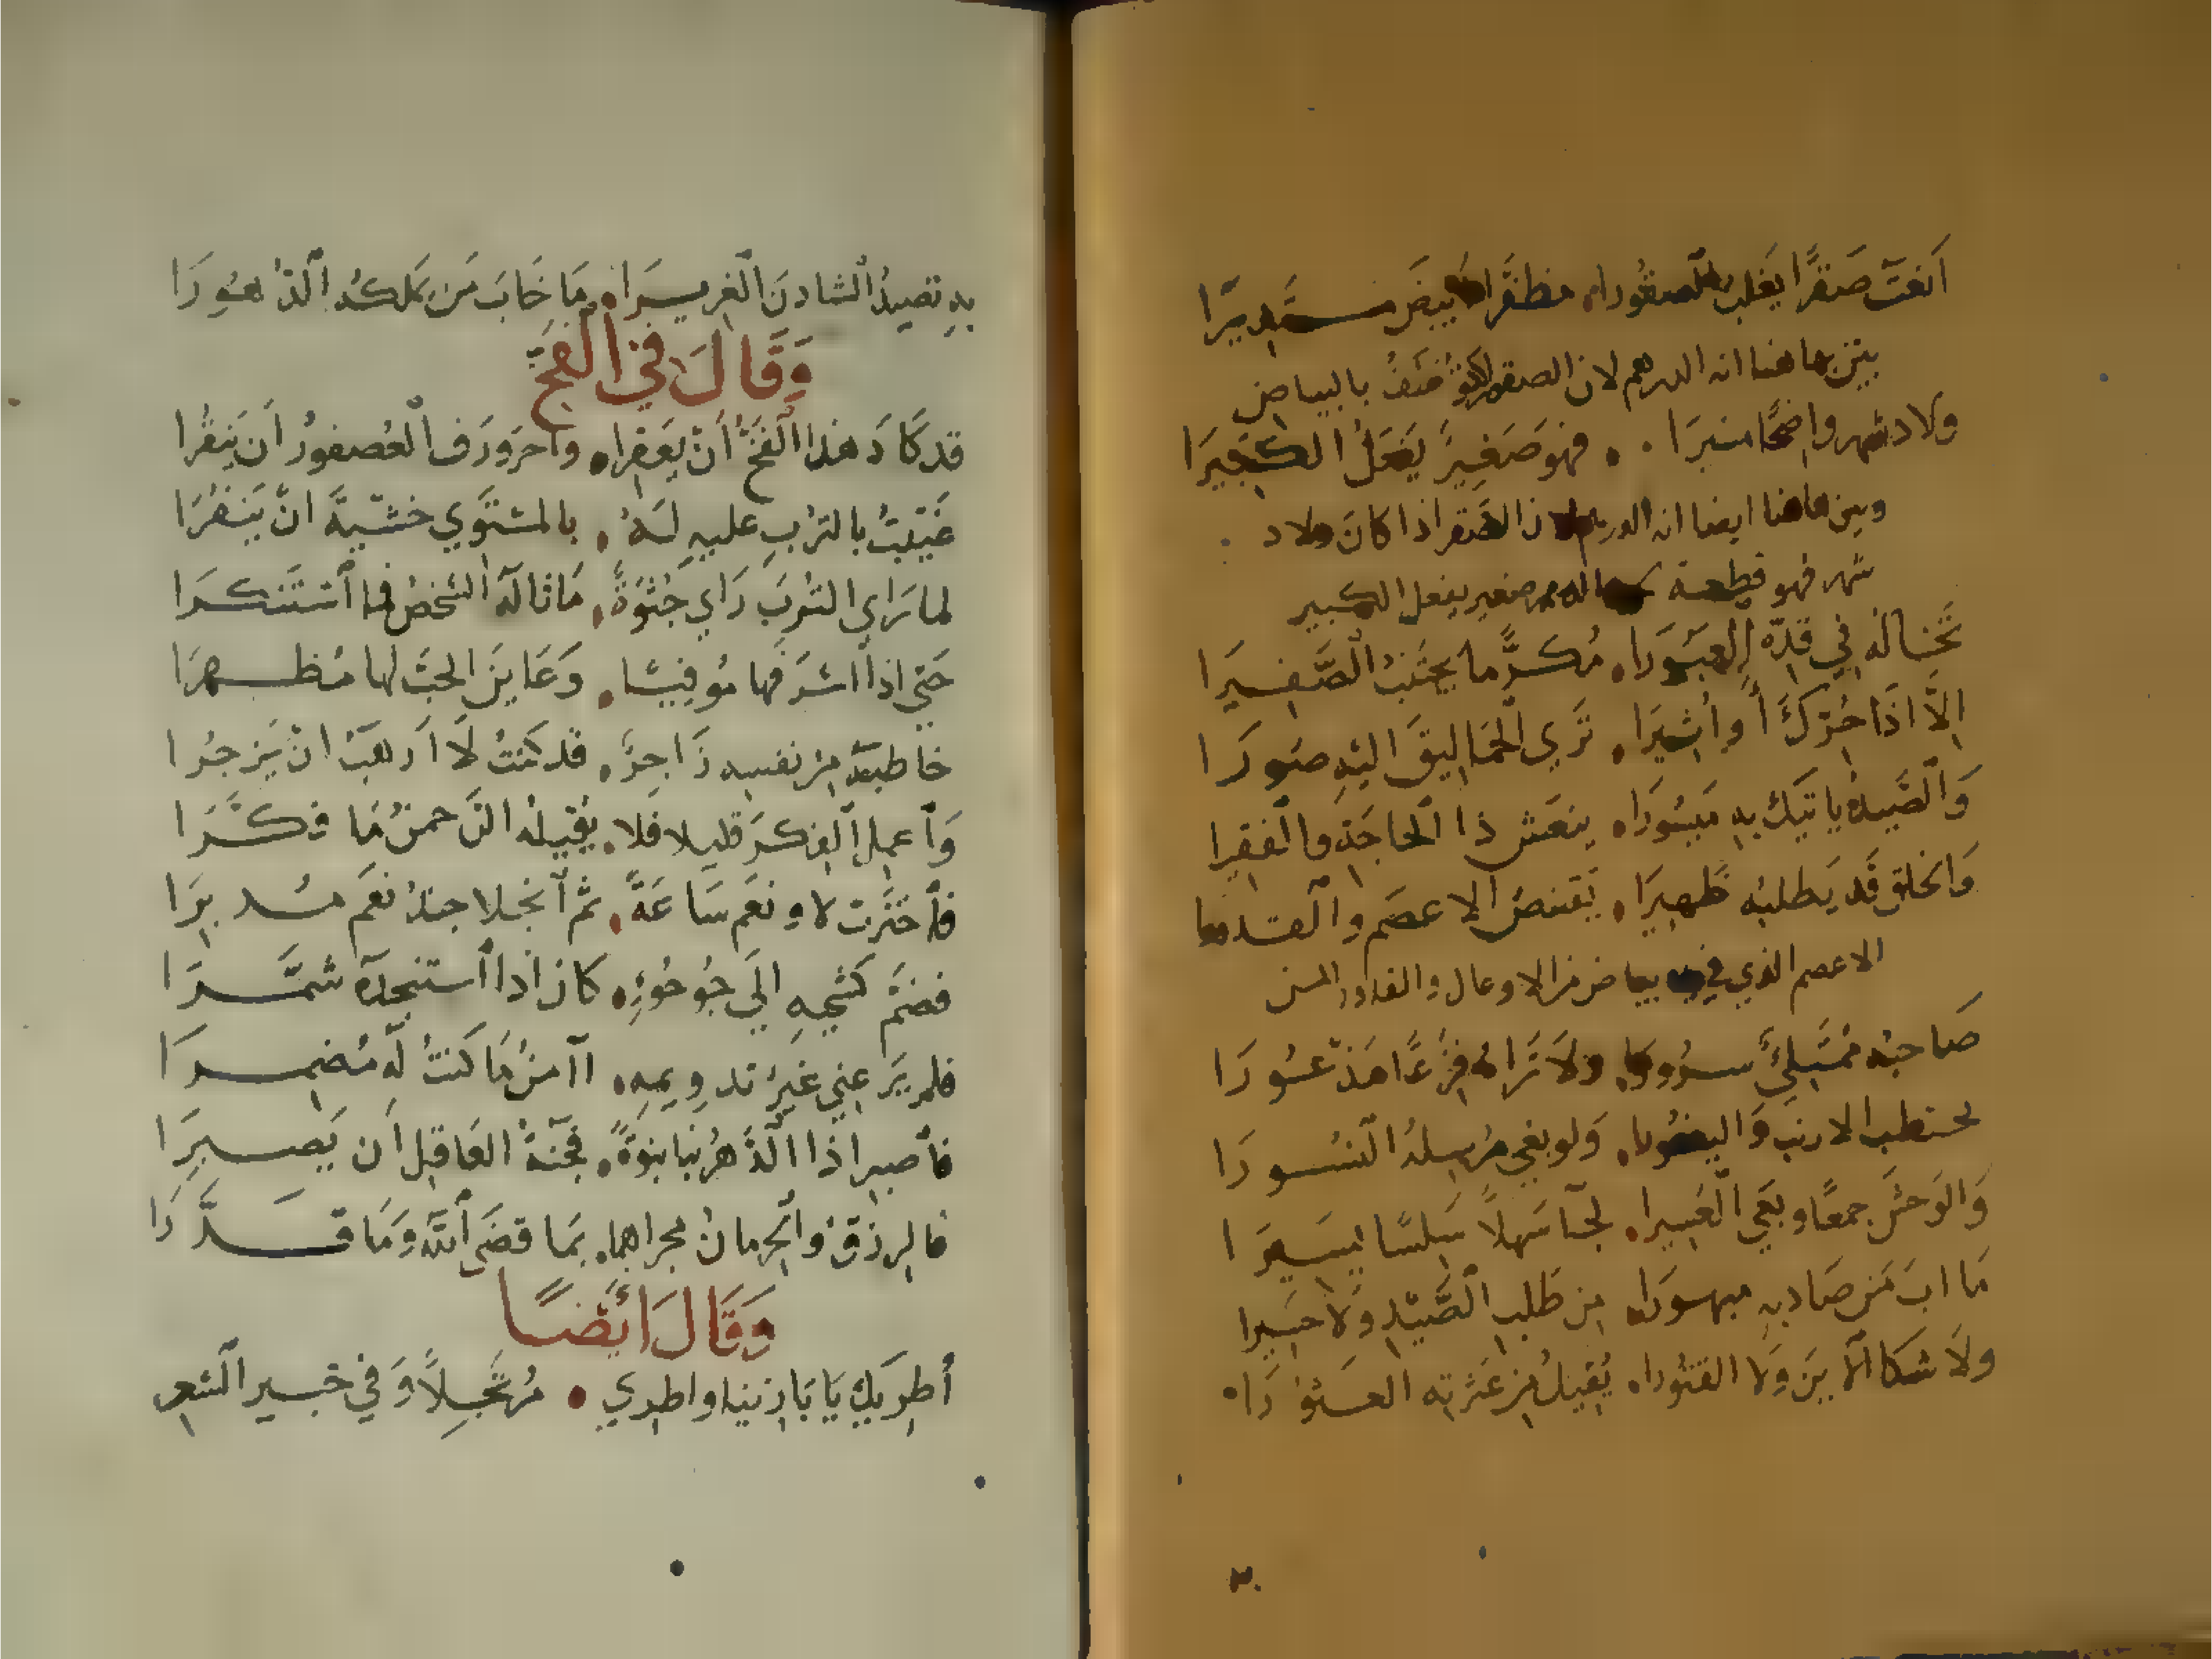 أنعت صقرًا يغلب الصقورا مظفرًا أبيض مستديرًا
بين هاهنا انه الدرهم لان الصقور لا توصف بالبياض
ولاد شهر واضحًا منيرا فهو صغير يفعل الكبيرا
وبين هاهنا ايضا انه الدرهم لان الصقر اذا كان ولاد
شهر فهو قطعة صغير يفعل الكبير
تخاله في قده العبورا مكرمًا يجنب الصفيرا
إلا اذا حرك أو أشيرا تري الحماليق اليه صورا
والصيد ياتيك به ميسورا ينعش ذا الحاجة والفقيرا
والخلق قد يطلبه ظهيرا يقتنص الاعصم والفدورا
الاعصم الذي في بياض من الاوعال والفادر المسن
صاحبه ممتلئ سرورا ولا تراه فزعًا مذعورا
يحتطب الارنب واليعفورا ولو بغي مرسله النسورا
والوحش جمعًا وبغي العسيرا لجا سهلاً سلسًا يسيرا
ما اب من صاد به مبهورا من طلب الصيد ولا حسيرا
ولا شكا الاين ولا الفتورا يقيل من عثرته العثورا
به تصيد الشادن الغريرا ما خاب من يملكه الدهورا
وقال في الفخ
قد كاد هذا الفخ أن يعقرا واحرورف العصفور أن ينقرا
غيبت بالترب عليه له بالمستوي خشية ان ينفرا
لما راي الترب راي جثوة ماثالة الشخص فما استنكرا
حتي اذا اشرفها موفيًا وعاين الحب لها مظهرا
خاطبه من نفسه زاجر قد كنت لا ارهب ان يزجرا
وأعمل الفكر قليلا فلا يقيله الرحمن ما فكرا
فاحترت لا و نعم ساعة ثم انجلا جند نعم مدبرا
فضم كشحيه الي جوجوئه كان اذا استنجده شمرا
فلم يرعني غير تدويمه آمن ما كنت له مضمرا
فاصبر اذا الدهر نبا نبوة فجنة العاقل أن يصبرا
فالرزق والحرمان مجراهما بما قضى الله وما قدرا
وقال ايضا
أطربك يا بازينا واطري مرتجلاً وفي خبير الشعر